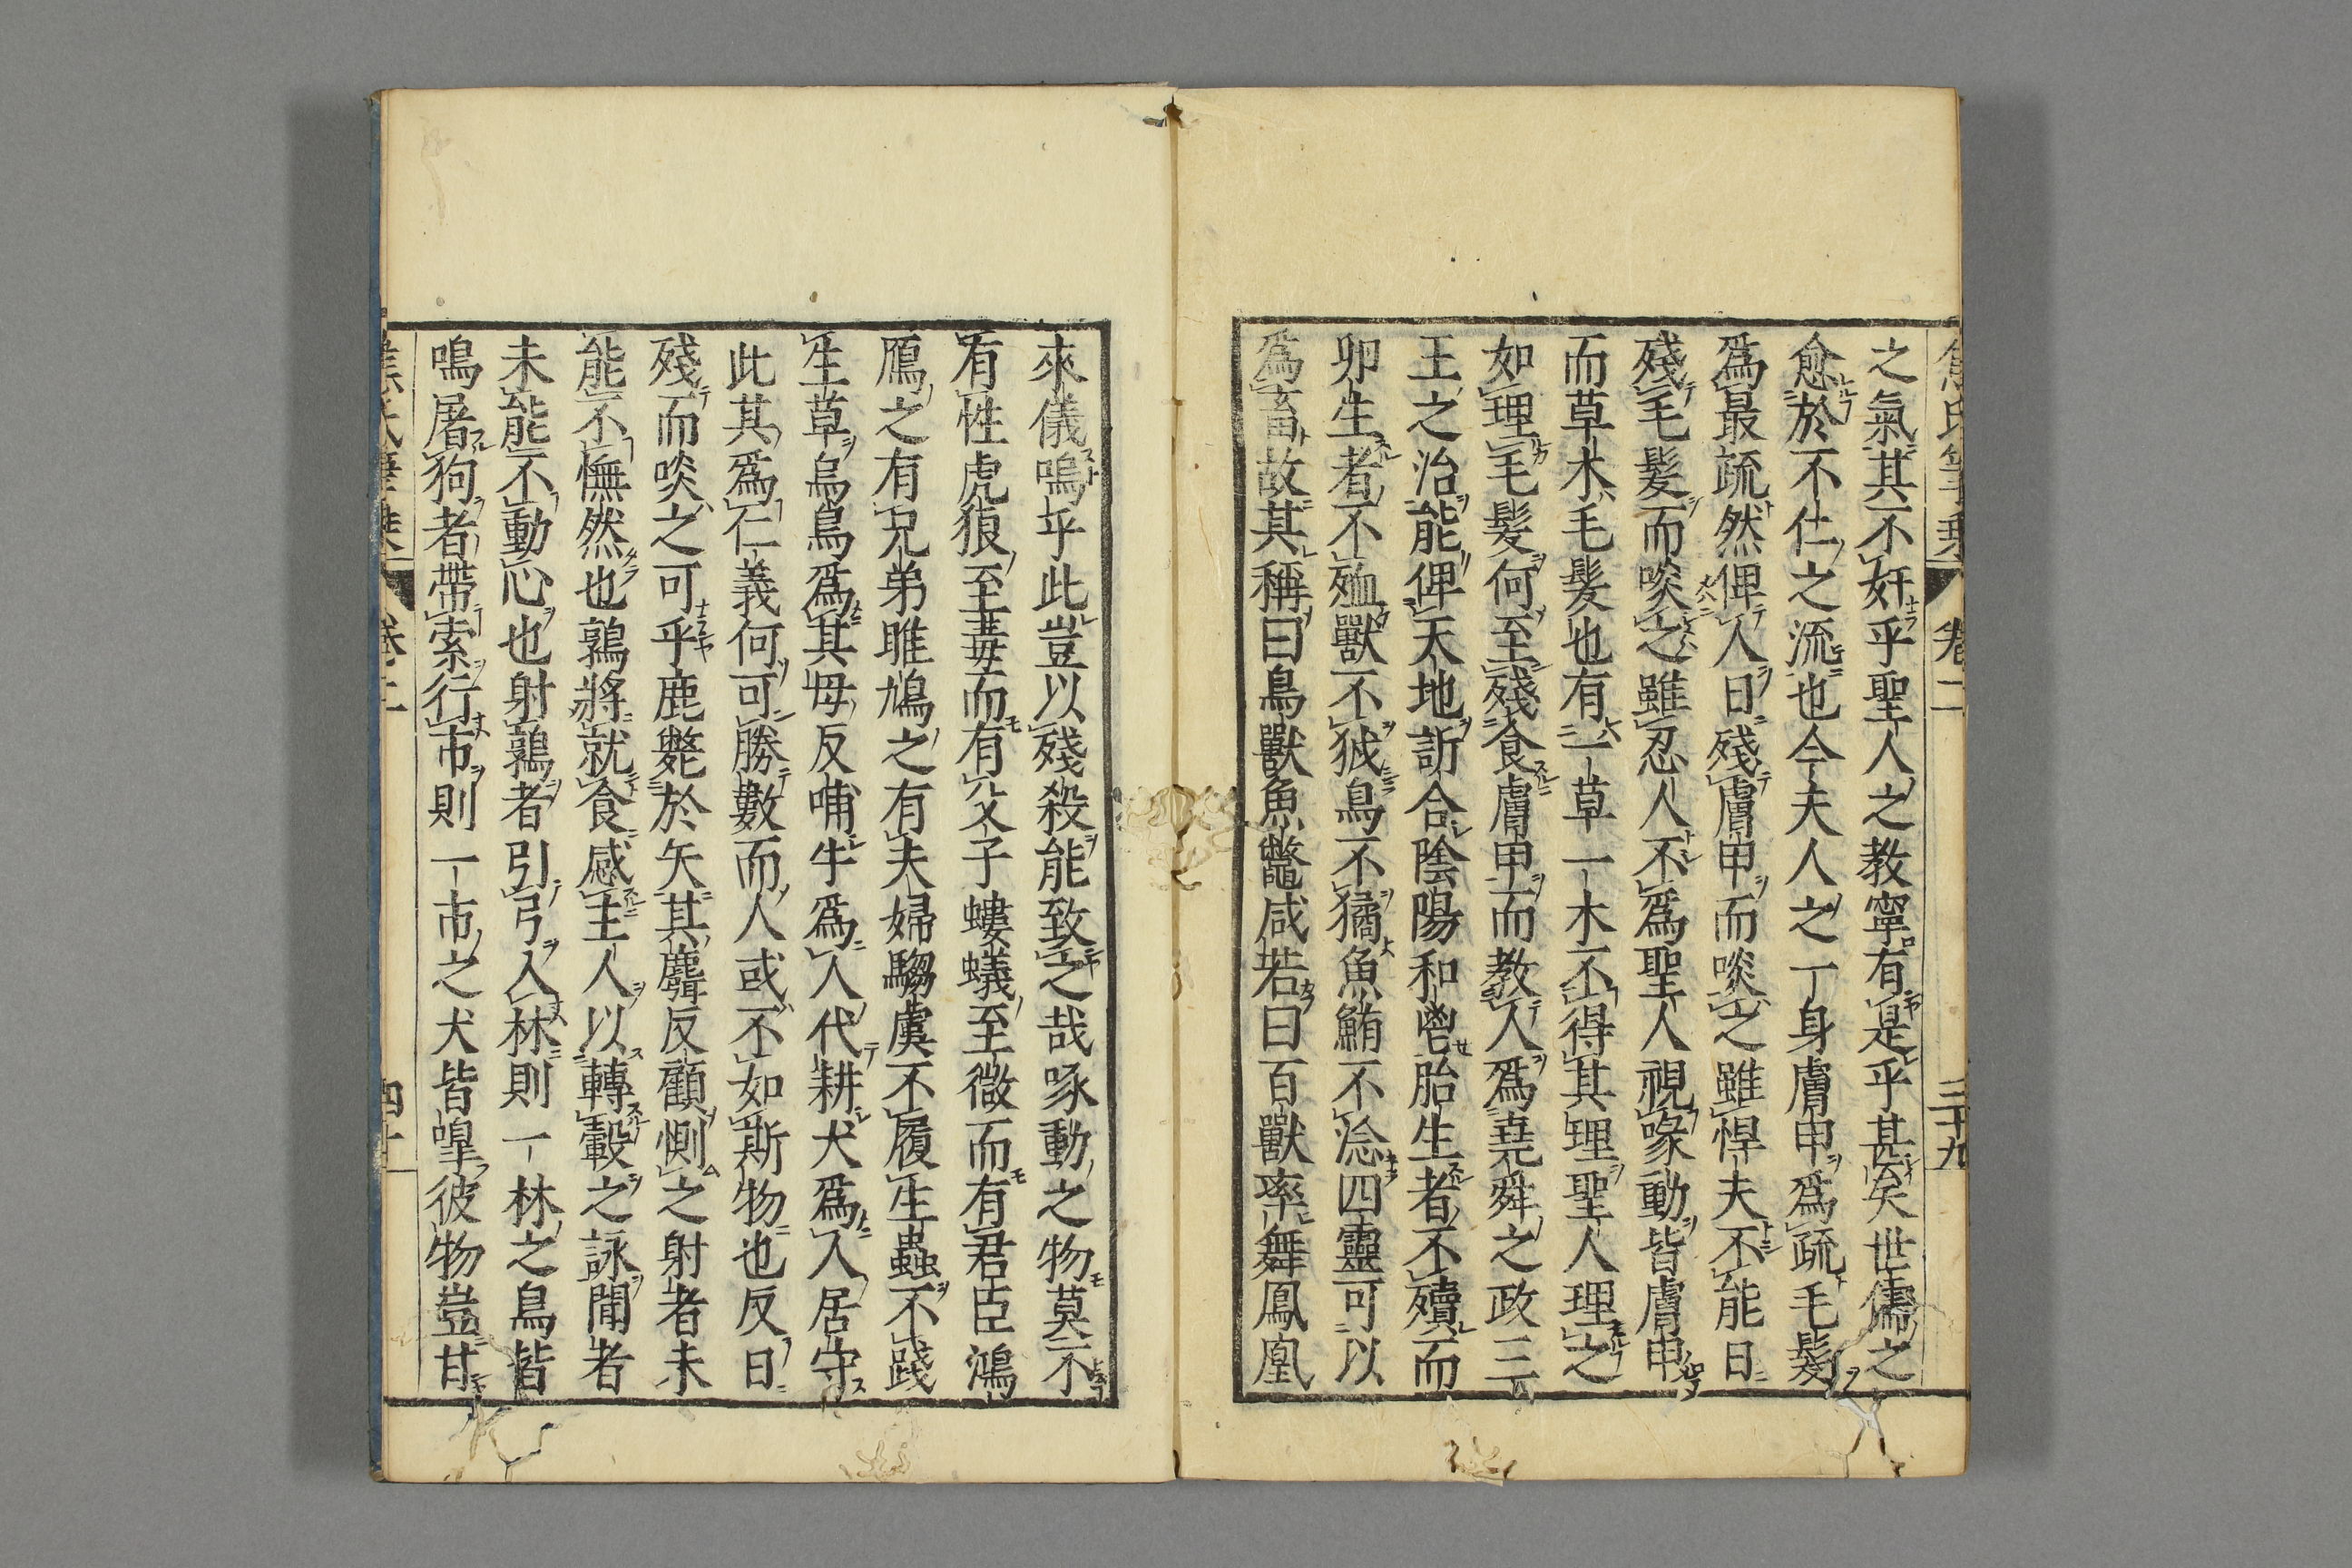 之氣其不奸乎聖人之教寧有是乎甚矣世儒之
愈於不仁之流也今夫人之一身膚甲爲疏毛髮
爲最疏然俾人日殘膚甲而啖之雖悍夫不能日
殘毛髮而啖之雖忍人不爲聖人視喙動皆膚甲
而草木毛髮也有一草一木不得其理聖人理之
如理毛髮何至殘食膚甲而教人爲堯舜之政三
王之治能俾天地訢合陰陽和鬯胎生者不殰而
卵生者不殈獸不狘鳥不獝魚鮪不淰四靈可以
爲畜故其稱曰鳥獸魚鼈咸若曰百獸率舞鳳凰
卷二
三十九
來儀嗚乎此豈以殘殺能致之哉喙動之物莫不
有性虎狼至毒而有父子螻蟻至微而有君臣鴻
鴈之有兄弟雎鳩之有夫婦騶虞不履生蟲不踐
生草烏鳥爲其母反哺牛爲人代耕犬爲人居守
此其爲仁義何可勝數而人或不如斯物也反日
殘而啖之可乎鹿斃於矢其麛反顧惻之射者未
能不憮然也鶉將就食感主人以轉轂之詠聞者
未能不動心也射鶉者引弓入林則一林之鳥皆
鳴屠狗者帶索行市則一市之犬皆嘷彼物豈甘
焦氏筆乗
卷二
四十